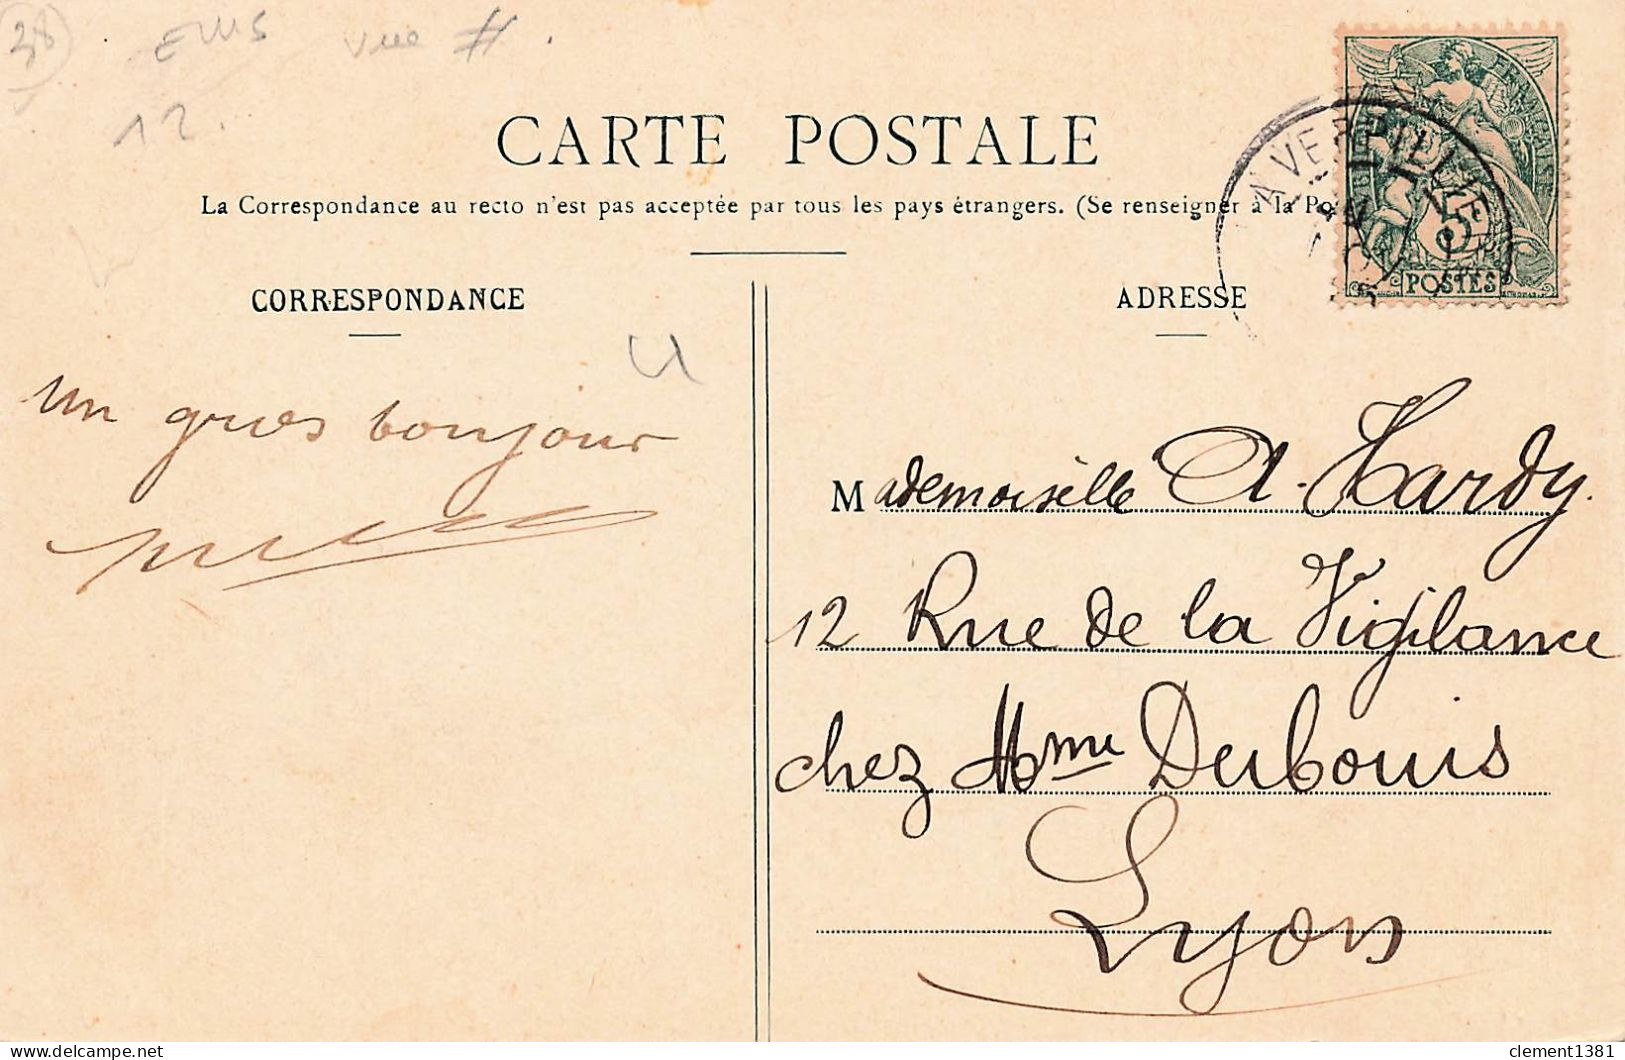 38
EWS vue #.
12.
CARTE POSTALE
La Correspondance au recto n'est pas acceptée par tous les pays étrangers. (Se renseigner à la Po
LA VERPILLIERE
FRANÇAISE
5c
POSTES
CORRESPONDANCE
ADRESSE
un gros bonjour
Mademoiselle A. Hardy.
12 Rue de la Vigilance
chez Mme Dubouis
Lyon
clement1381